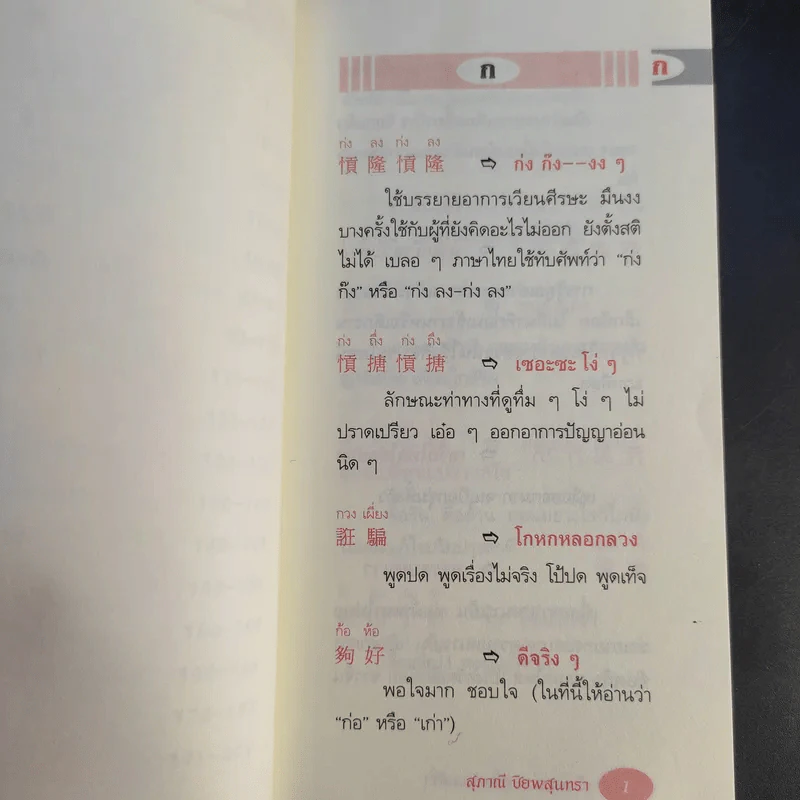 ก
ก
ก่ง ลง ก่ง ลง
愩 隆 愩 隆 ⇨ ก่ง ก๊ง--งง ๆ
ใช้บรรยายอาการเวียนศีรษะ มึนงง
บางครั้งใช้กับผู้ที่ยังคิดอะไรไม่ออก ยังตั้งสติ
ไม่ได้ เบลอ ๆ ภาษาไทยใช้ทับศัพท์ว่า “ก่ง
ก๊ง” หรือ “ก่ง ลง-ก่ง ลง”
ก่ง ถึ่ง ก่ง ถึ่ง
愩 搪 愩 搪 ⇨ เซอะซะ โง่ ๆ
ลักษณะท่าทางที่ดูทึ่ม ๆ โง่ ๆ ไม่
ปราดเปรียว เอ๋อ ๆ ออกอาการปัญญาอ่อน
นิด ๆ
กวง เผี่ยง
誆 騙 ⇨ โกหกหลอกลวง
พูดปด พูดเรื่องไม่จริง โป้ปด พูดเท็จ
ก้อ ห้อ
夠 好 ⇨ ดีจริง ๆ
พอใจมาก ชอบใจ (ในที่นี้ให้อ่านว่า
“ก่อ” หรือ “เก่า”)
สุภาณี ปิยพสุนทรา 1